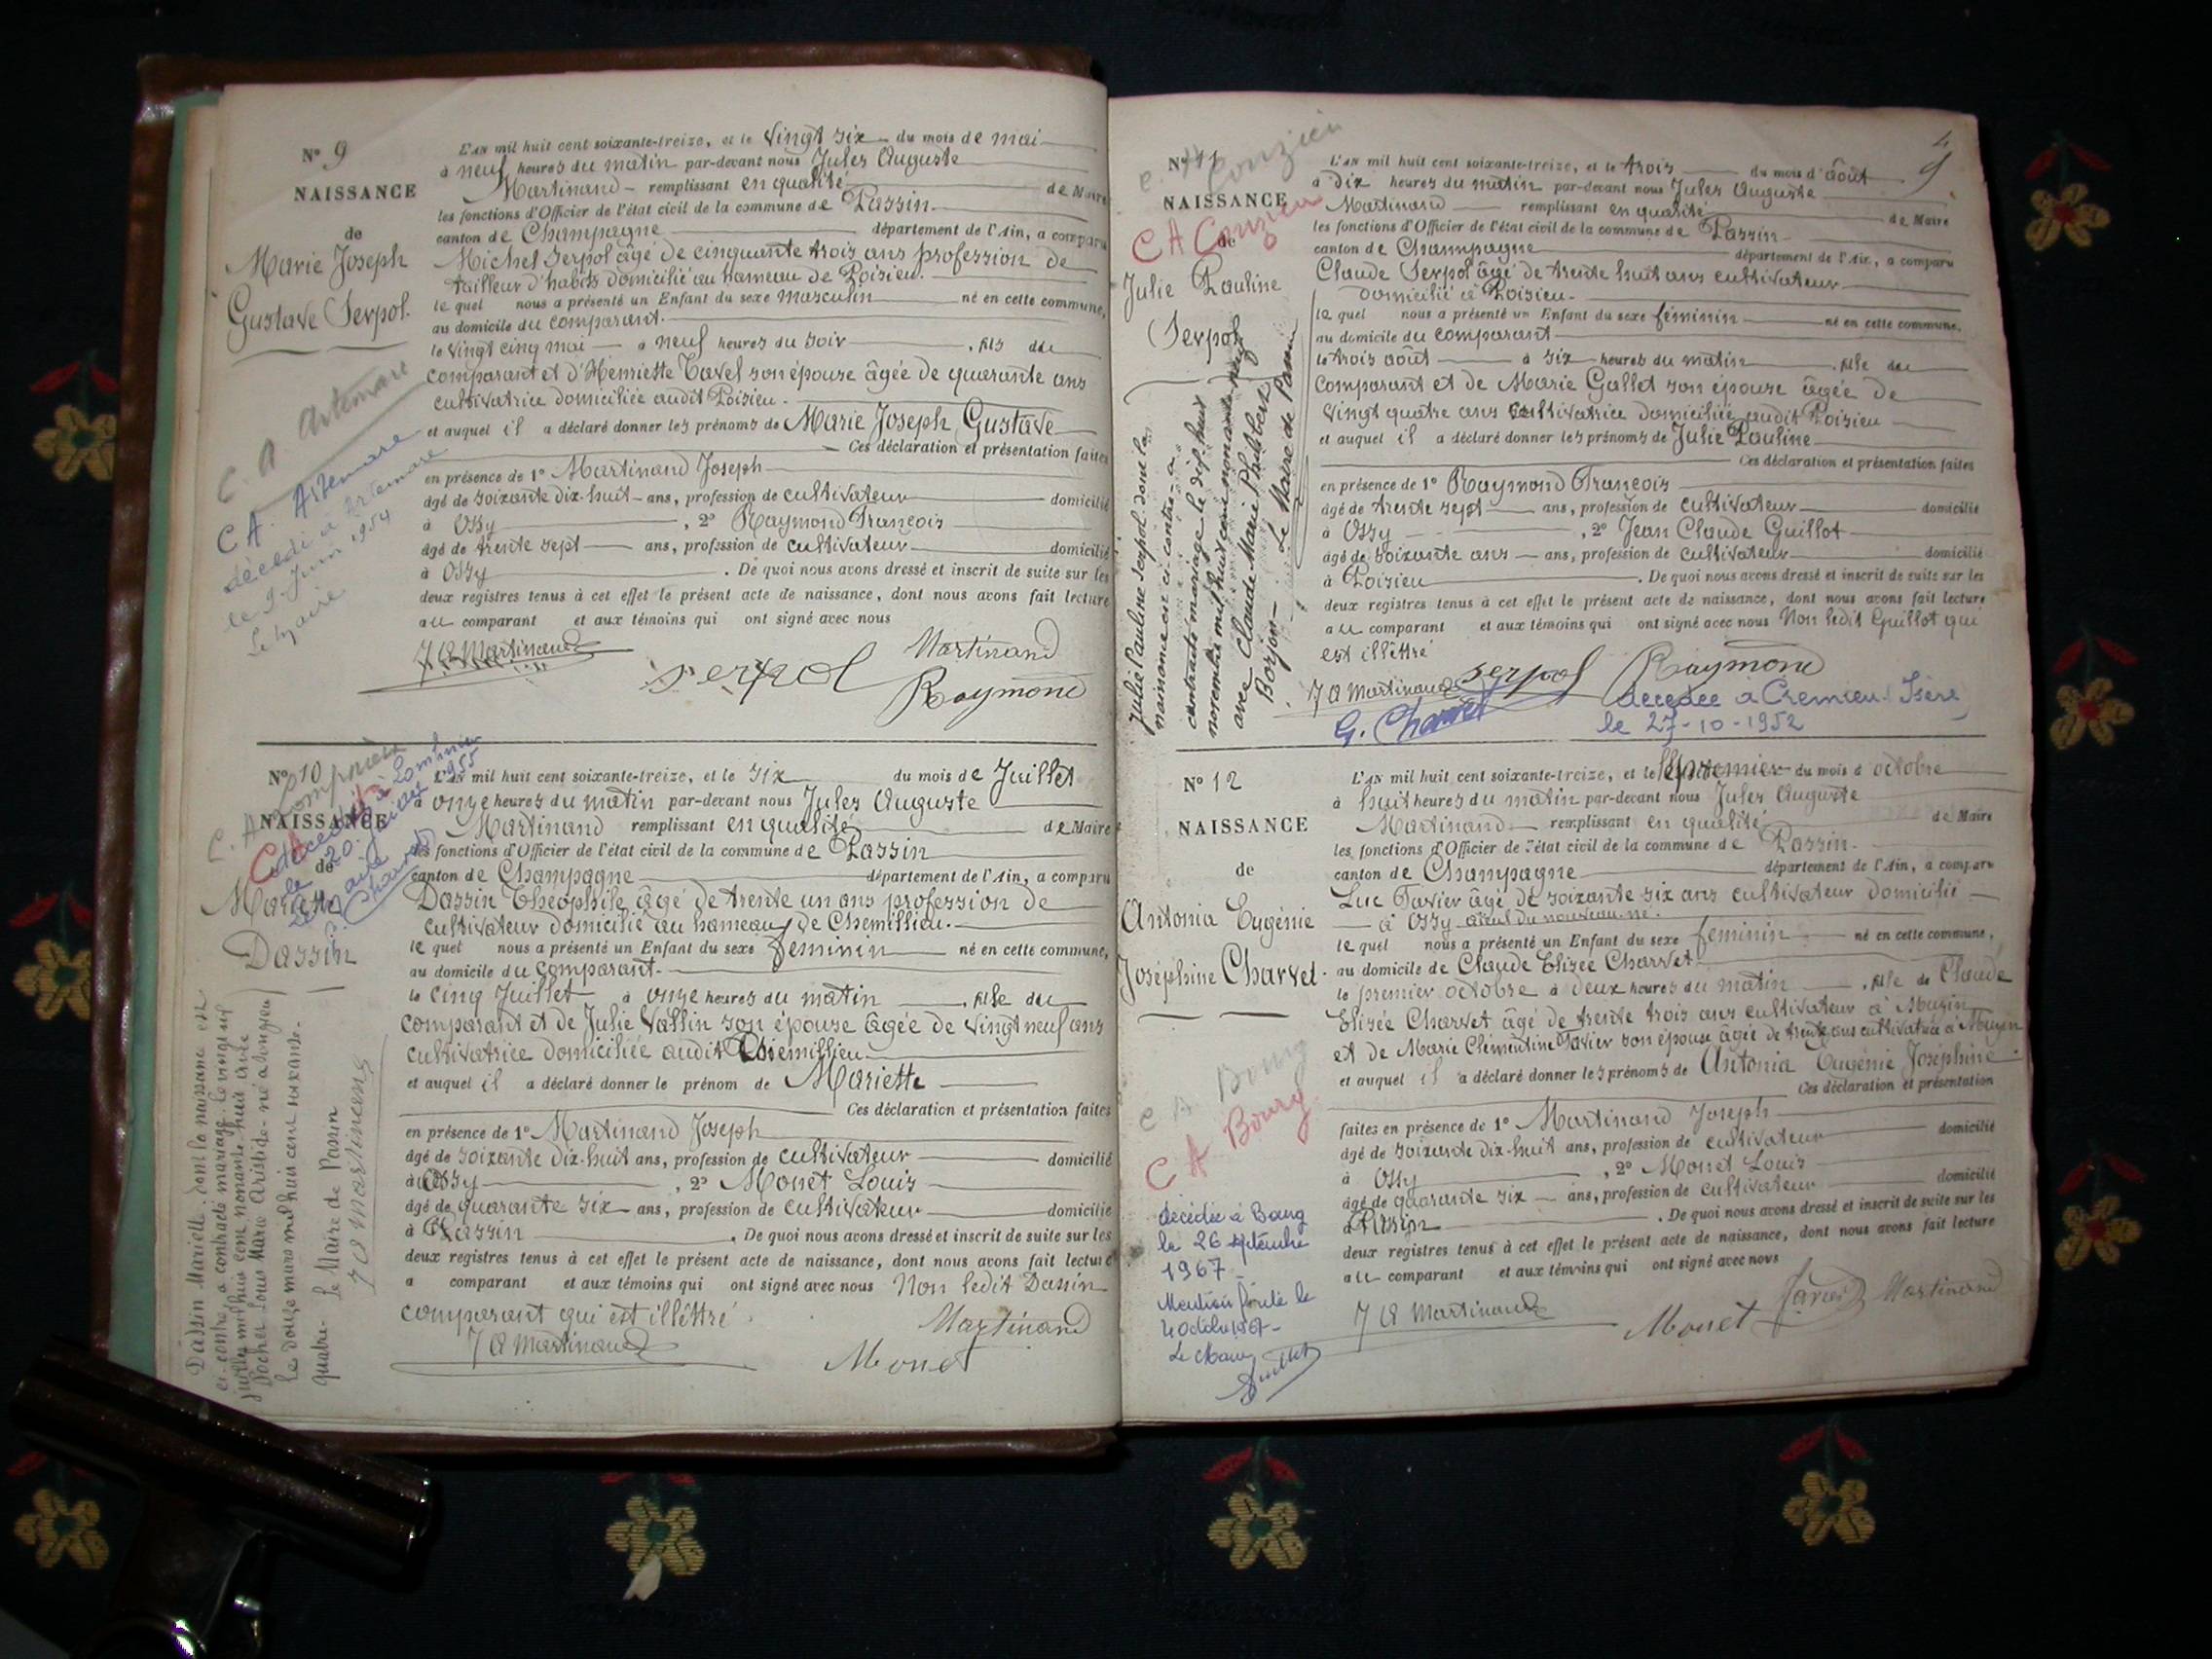 N° 9
NAISSANCE
de
Marie Joseph
Gustave Serpol.
C. A. Artemare
CA. Artemare
décédé à Artemare
le 9 Juin 1954
le Maire
L'AN mil huit cent soixante-treize, et le Vingt six du mois de mai
à neuf heures du matin par-devant nous Jules Auguste
Martinand remplissant en qualité de Maire
les fonctions d'Officier de l'état civil de la commune de Passin
canton de Champagne département de l'Ain, a comparu
Michel Serpol âgé de cinquante trois ans profession de
tailleur d'habits domicilié au hameau de Poisieu.
le quel nous a présenté un Enfant du sexe masculin né en cette commune,
au domicile du comparant.
le vingt cinq mai à neuf heures du soir, fils du
comparant et d'Henriette Tavel son épouse âgée de quarante ans
cultivatrice domiciliée audit Poisieu.
et auquel il a déclaré donner les prénoms de Marie Joseph Gustave
Ces déclaration et présentation faites
en présence de 1° Martinand Joseph
âgé de soixante dix-huit ans, profession de cultivateur domicilié
à Ossy, 2° Raymond François
âgé de trente sept ans, profession de cultivateur domicilié
à Ossy. De quoi nous avons dressé et inscrit de suite sur les
deux registres tenus à cet effet le présent acte de naissance, dont nous avons fait lecture
au comparant et aux témoins qui ont signé avec nous
J A Martinand
Serpol
Martinand
Raymond
N° 10
NAISSANCE
de
Mariette
Dassin
L'AN mil huit cent soixante-treize, et le six du mois de Juillet
à onze heures du matin par-devant nous Jules Auguste
Martinand remplissant en qualité de Maire
les fonctions d'Officier de l'état civil de la commune de Passin
canton de Champagne département de l'Ain, a comparu
Dassin Théophile âgé de trente un ans profession de
cultivateur domicilié au hameau de Chemillieu.
le quel nous a présenté un Enfant du sexe féminin né en cette commune,
au domicile du comparant.
le cinq Juillet à onze heures du matin, fille du
comparant et de Julie Vallin son épouse âgée de vingt neuf ans
cultivatrice domiciliée audit Chemillieu
et auquel il a déclaré donner le prénom de Mariette
Ces déclaration et présentation faites
en présence de 1° Martinand Joseph
âgé de soixante dix-huit ans, profession de cultivateur domicilié
à Ossy, 2° Monet Louis
âgé de quarante six ans, profession de cultivateur domicilié
à Passin. De quoi nous avons dressé et inscrit de suite sur les
deux registres tenus à cet effet le présent acte de naissance, dont nous avons fait lecture
a comparant et aux témoins qui ont signé avec nous Non ledit Dassin
comparant qui est illêttré.
J A Martinand
Martinand
Monet
Dassin Mariette, dont la naissance est
ci-contre, a contracté mariage le vingt
juillet mil huit cent nonante huit avec
Louis Marie Aristide né à Songieu
le douze mars mil huit cent soixante-
quatre. Le Maire de Passin
J A Martinand
N° 11
NAISSANCE
de
Julie Pauline
Serpol
C A Conzieu
Julie Pauline Serpol dont la
naissance est ci-contre a
contracté mariage le dix huit
novembre mil huit cent nonante neuf
avec Claude Marie Philibert
Borjon
Le Maire de Passin
9
L'AN mil huit cent soixante-treize, et le trois du mois d'août
à dix heures du matin par-devant nous Jules Auguste
Martinand remplissant en qualité de Maire
les fonctions d'Officier de l'état civil de la commune de Passin
canton de Champagne département de l'Ain, a comparu
Claude Serpol âgé de trente huit ans cultivateur
domicilié à Poisieu.
le quel nous a présenté un Enfant du sexe féminin né en cette commune,
au domicile du comparant
le trois août à six heures du matin, fille du
comparant et de Marie Gallet son épouse âgée de
vingt quatre ans cultivatrice domiciliée audit Poisieu
et auquel il a déclaré donner les prénoms de Julie Pauline
Ces déclaration et présentation faites
en présence de 1° Raymond François
âgé de trente sept ans, profession de cultivateur domicilié
à Ossy, 2° Jean Claude Guillot
âgé de soixante ans ans, profession de cultivateur domicilié
à Poisieu. De quoi nous avons dressé et inscrit de suite sur les
deux registres tenus à cet effet le présent acte de naissance, dont nous avons fait lecture
au comparant et aux témoins qui ont signé avec nous Non ledit Guillot qui
est illêttré
J A Martinand
Serpol
Raymond
décédée à Crémieu (Isère)
le 27-10-1952
N° 12
NAISSANCE
de
Antonia Eugénie
Joséphine Charvet.
C A Bourg
C A Bourg
décédée à Bourg
le 26 septembre
1967
Mention portée le
4 octobre 1967
Le Maire
L'AN mil huit cent soixante-treize, et le premier du mois d octobre
à huit heures du matin par-devant nous Jules Auguste
Martinand remplissant en qualité de Maire
les fonctions d'Officier de l'état civil de la commune de Passin.
canton de Champagne département de l'Ain, a comparu
Luc Tavier âgé de soixante six ans cultivateur domicilié
à Ossy aïeul du nouveau-né.
le quel nous a présenté un Enfant du sexe féminin né en cette commune,
au domicile de Claude Elisée Charvet
le premier octobre à deux heures du matin, fille de Claude
Elisée Charvet âgé de trente trois ans cultivateur à Muzin
et de Marie Clémentine Tavier son épouse âgée de trente ans cultivatrice à Muzin
et auquel il a déclaré donner les prénoms de Antonia Eugénie Joséphine
Ces déclaration et présentation
faites en présence de 1° Martinand Joseph
âgé de soixante dix-huit ans, profession de cultivateur domicilié
à Ossy, 2° Monet Louis
âgé de quarante six ans, profession de cultivateur domicilié
à Passin. De quoi nous avons dressé et inscrit de suite sur les
deux registres tenus à cet effet le présent acte de naissance, dont nous avons fait lecture
au comparant et aux témoins qui ont signé avec nous
J A Martinand
Monet
Martinand